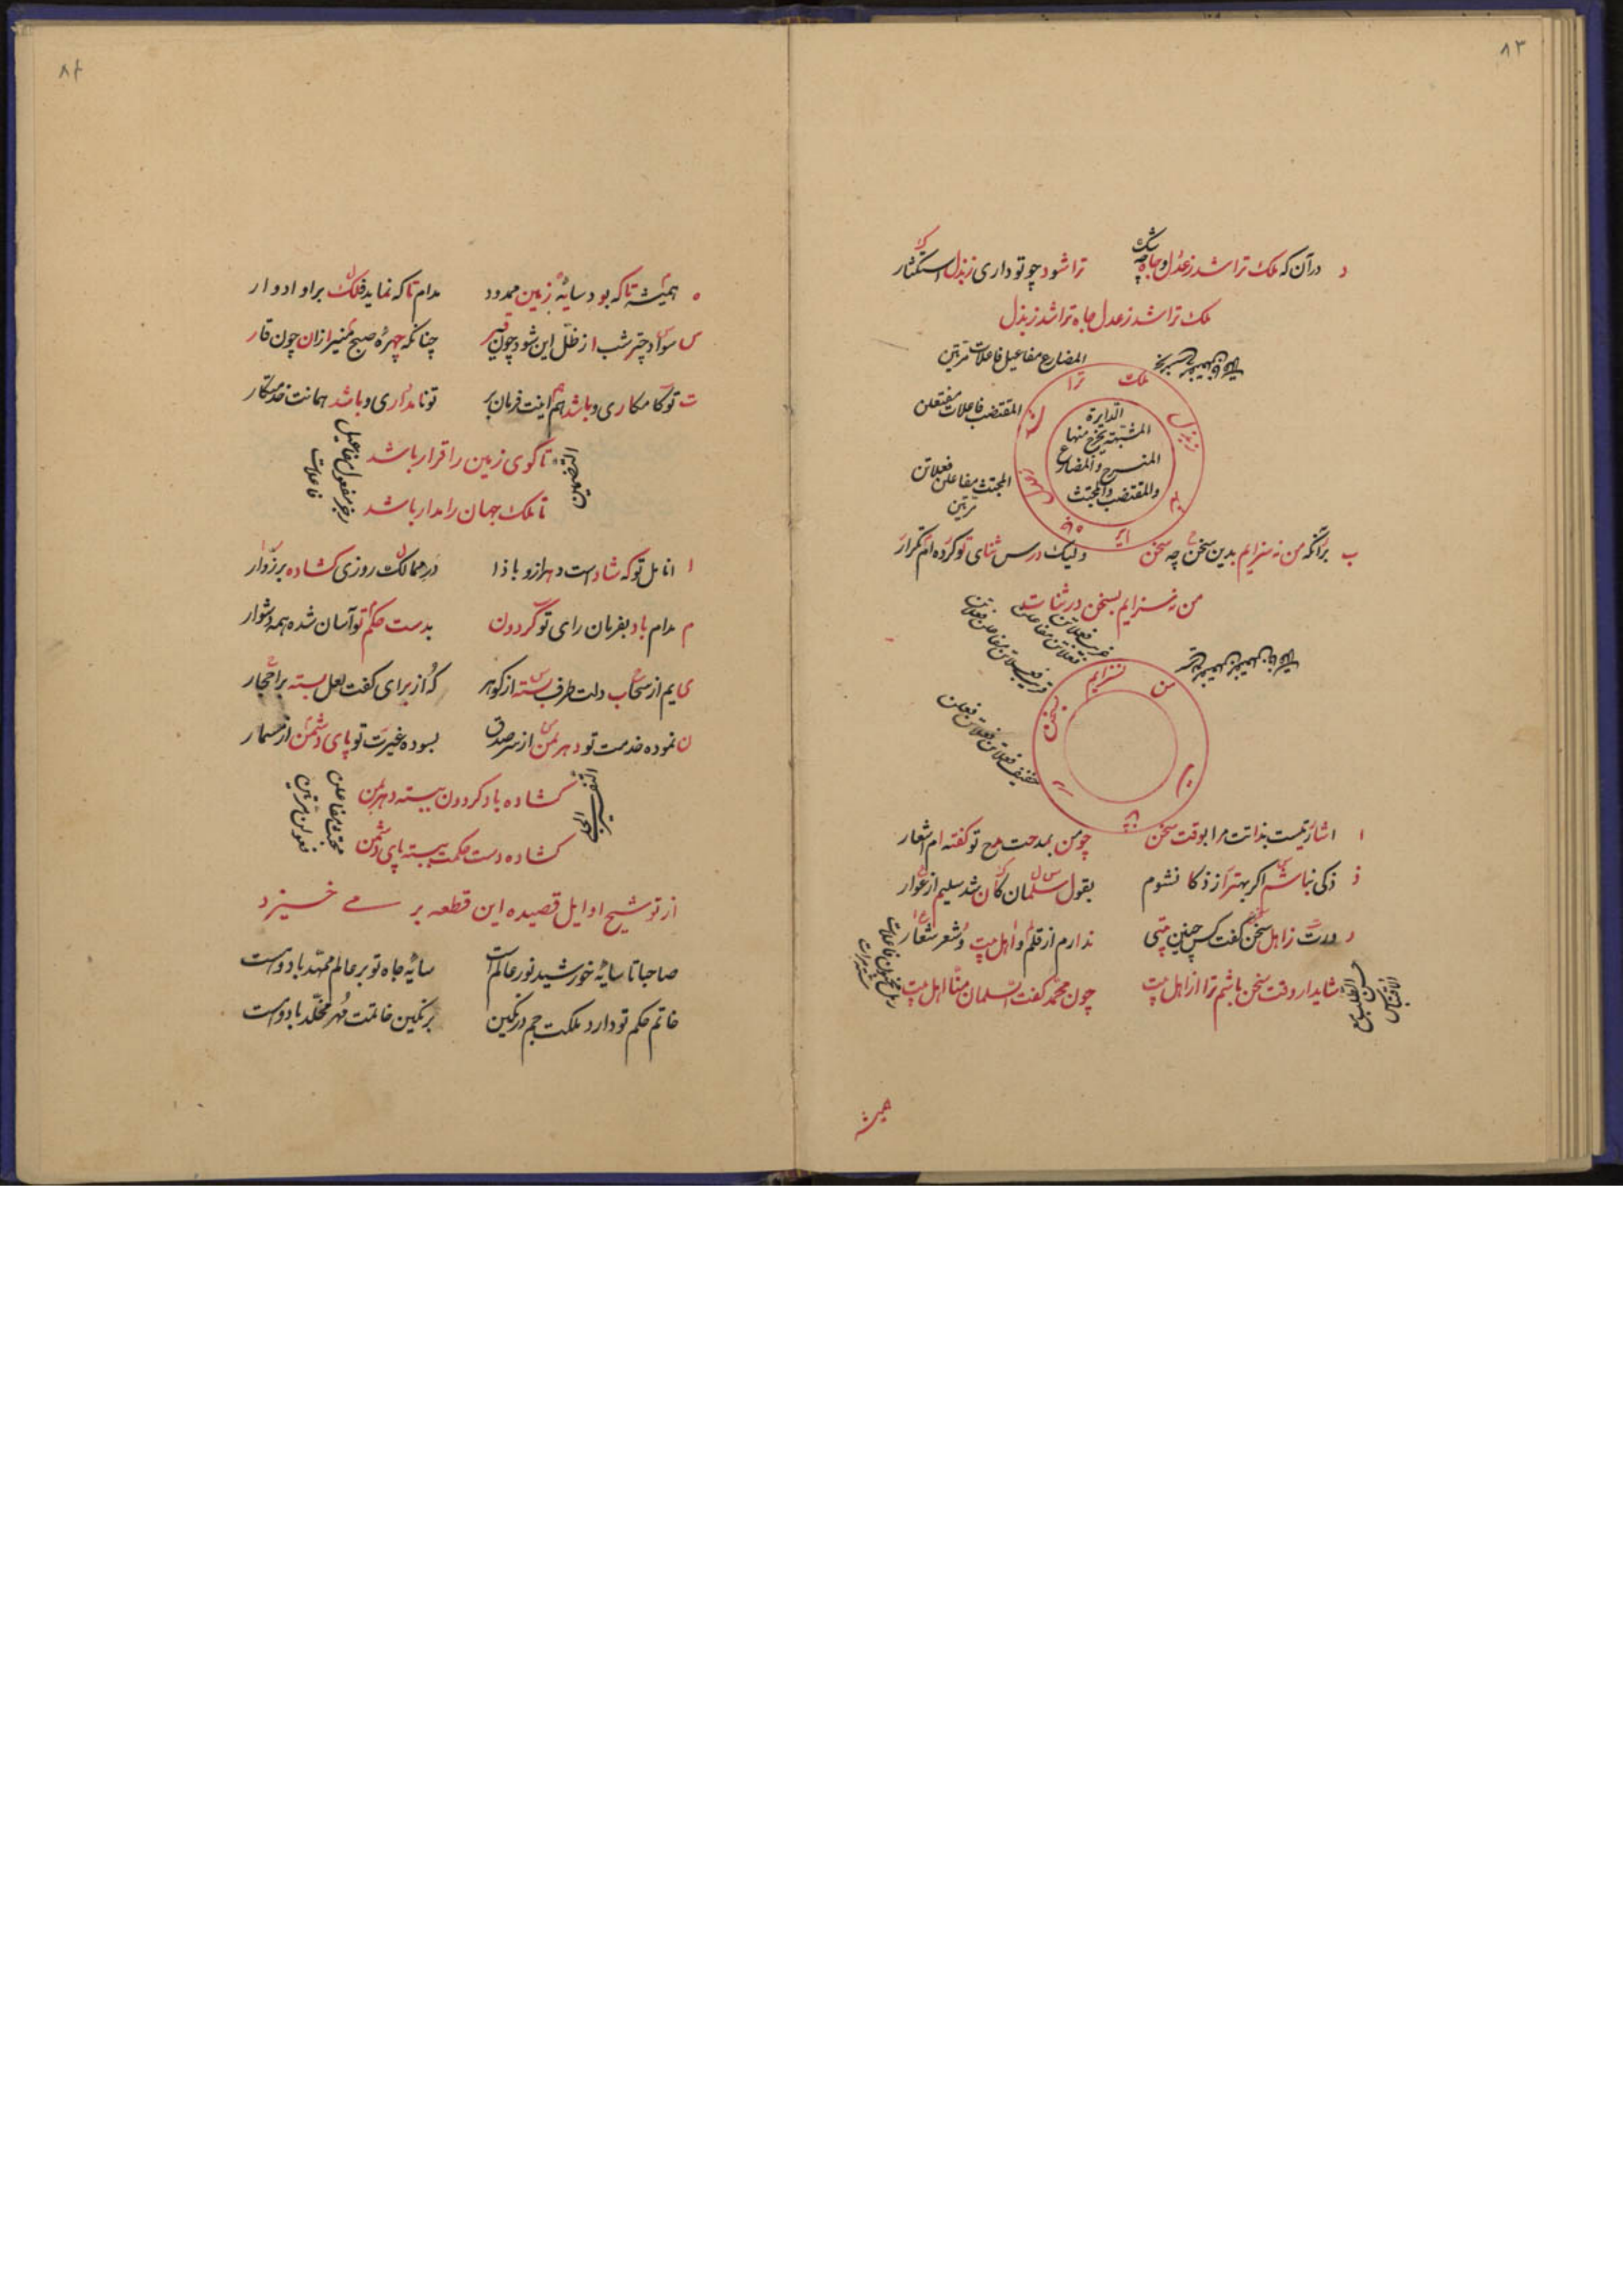 ۸۳
د درآن که ملک ترا شد ز عدل و جاه چه شک
ترا شود چو تو داری ز بذل استکثار
ملک ترا شد ز عدل جاه ترا شد ز بذل
المضارع مفاعیل فاعلات مرتین
المقتضب فاعلات مفتعلن
المجتث مفاعلن فعلاتن
مرتین
ملک
ترا
ز بذل
الدایرة
المشتبهة یخرج منها
المنسرح والمضارع
والمقتضب والمجتث
ب برآنکه من نه سزایم بدین سخن چه سخن
ولیک درس ثنای تو کرده‌ام تکرار
من نه سزایم بسخن در ثنات
من
نسزایم
بسخن
خفیف فعلاتن مفاعلن فعلن
ا اشارتیست بذاتت مرا بوقت سخن
چو من بمدحت مدح تو گفته ام اشعار
ذ ذکی نباشم اگر بهتر از ذکا نشوم
بقول سلمان کان شد سلیم از عوار
ر ورت ز اهل سخن گفت کس چنین بیتی
ندارم از قلم و اهل بیت و شعر شعار
شاید ار وقت سخن باشم ترا از اهل بیت
چون محمد گفت السلمان منا اهل بیت
حسن الطلب مع
الاقتباس
رمل مخبون فاعلات
همیشه
۸۴
ه همیشه تا که بود سایهٔ زمین ممدود
مدام تا که نماید فلک براو ادوار
س سواد چتر شب از ظل این شود چون قیر
چنانکه چهرهٔ صبح منیر ازان چون قار
ت تو کامکاری و باشد هم اینت فرمان بر
تو نامداری و باشد همانت خدمتکار
تا گوی زمین را قرار باشد
تا ملک جهان را مدار باشد
مفعول مفاعیل
فاعلات
ا انامل تو که شاد است دهر ازو بادا
در ممالک روزی گشاده بر زوار
م مدام باد بفرمان رای تو گردون
بدست حکم تو آسان شده همه دشوار
ی یم از سحاب دلت طرف بسته از گوهر
که از برای کفت لعل بسته بر احجار
ن نموده خدمت تو دهر لمن از سر صدق
بسوده غیرت تو پای دشمن از مسمار
گشاده باد گردون ببسته دهر لمن
گشاده دست حکمت ببسته پای دشمن
مجتث مفاعلن
فعولن مرتین
از توشیح اوایل قصیده این قطعه بر می خیزد
صاحبا تا سایهٔ خورشید نور عالم است
سایهٔ جاه تو بر عالم ممهد باد و است
خاتم حکم تو دارد ملکت جم در نگین
بر نگین خاتمت مهر مخلد باد و است